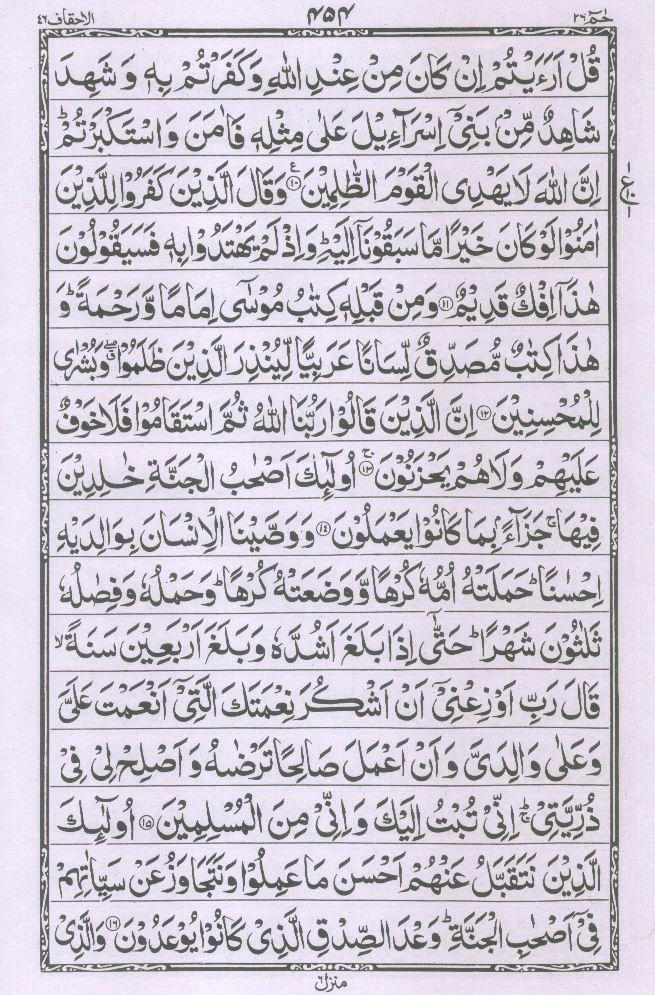 حٰمٓ ٢٦ ٤٥٤ الاحقاف ٤٦
قُلْ اَرَءَيْتُمْ اِنْ كَانَ مِنْ عِنْدِ اللّٰهِ وَكَفَرْتُمْ بِهٖ وَ شَهِدَ
شَاهِدٌ مِّنْۢ بَنِيْۤ اِسْرَآءِيْلَ عَلٰى مِثْلِهٖ فَاٰمَنَ وَ اسْتَكْبَرْتُمْ ؕ
اِنَّ اللّٰهَ لَا يَهْدِى الْقَوْمَ الظّٰلِمِيْنَ ۧ‏ ﴿۱۰﴾ وَقَالَ الَّذِيْنَ كَفَرُوْا لِلَّذِيْنَ
اٰمَنُوْا لَوْ كَانَ خَيْرًا مَّا سَبَقُوْنَاۤ اِلَيْهِ ؕ وَ اِذْ لَمْ يَهْتَدُوْا بِهٖ فَسَيَقُوْلُوْنَ
هٰذَاۤ اِفْكٌ قَدِيْمٌ ﴿۱۱﴾ وَمِنْ قَبْلِهٖ كِتٰبُ مُوْسٰٓى اِمَامًا وَّ رَحْمَةً ؕ وَ
هٰذَا كِتٰبٌ مُّصَدِّقٌ لِّسَانًا عَرَبِيًّا لِّيُنْذِرَ الَّذِيْنَ ظَلَمُوْا ۖۗ وَ بُشْرٰى
لِلْمُحْسِنِيْنَ ﴿۱۲﴾ اِنَّ الَّذِيْنَ قَالُوْا رَبُّنَا اللّٰهُ ثُمَّ اسْتَقَامُوْا فَلَا خَوْفٌ
عَلَيْهِمْ وَ لَا هُمْ يَحْزَنُوْنَ ۚ ﴿۱۳﴾ اُولٰٓئِكَ اَصْحٰبُ الْجَنَّةِ خٰلِدِيْنَ
فِيْهَا ۚ جَزَآءًۢ بِمَا كَانُوْا يَعْمَلُوْنَ ﴿۱٤﴾ وَ وَصَّيْنَا الْاِنْسَانَ بِوَالِدَيْهِ
اِحْسٰنًا ؕ حَمَلَتْهُ اُمُّهٗ كُرْهًا وَّ وَضَعَتْهُ كُرْهًا ؕ وَ حَمْلُهٗ وَ فِصٰلُهٗ
ثَلٰثُوْنَ شَهْرًا ؕ حَتّٰٓى اِذَا بَلَغَ اَشُدَّهٗ وَ بَلَغَ اَرْبَعِيْنَ سَنَةً ۙ
قَالَ رَبِّ اَوْزِعْنِيْۤ اَنْ اَشْكُرَ نِعْمَتَكَ الَّتِيْۤ اَنْعَمْتَ عَلَيَّ
وَ عَلٰى وَالِدَيَّ وَ اَنْ اَعْمَلَ صَالِحًا تَرْضٰىهُ وَ اَصْلِحْ لِيْ فِيْ
ذُرِّيَّتِيْ ۚؕ اِنِّيْ تُبْتُ اِلَيْكَ وَ اِنِّيْ مِنَ الْمُسْلِمِيْنَ ﴿۱۵﴾ اُولٰٓئِكَ
الَّذِيْنَ نَتَقَبَّلُ عَنْهُمْ اَحْسَنَ مَا عَمِلُوْا وَ نَتَجَاوَزُ عَنْ سَيِّاٰتِهِمْ
فِيْۤ اَصْحٰبِ الْجَنَّةِ ؕ وَعْدَ الصِّدْقِ الَّذِيْ كَانُوْا يُوْعَدُوْنَ ﴿۱٦﴾ وَ الَّذِيْ
منزل ٦